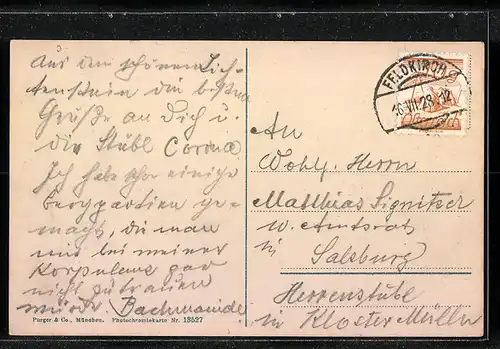 Aus dem schönen Lich-
tenstein die besten
Grüße an Dich u.
die Stübl Corona
Ich habe schon einige
bergpartien ge-
macht, die man
mir bei meiner
Korpulenz gar
nicht zutrauen
würde. Bachmaninde
Purger & Co., München. Photochromiekarte Nr. 13527
FELDKIRCH
16.VII.28 12
An
Wohlg. Herrn
Matthias Lignitzer
in
Salzburg
Herrenstübl
in Kloster Mülln